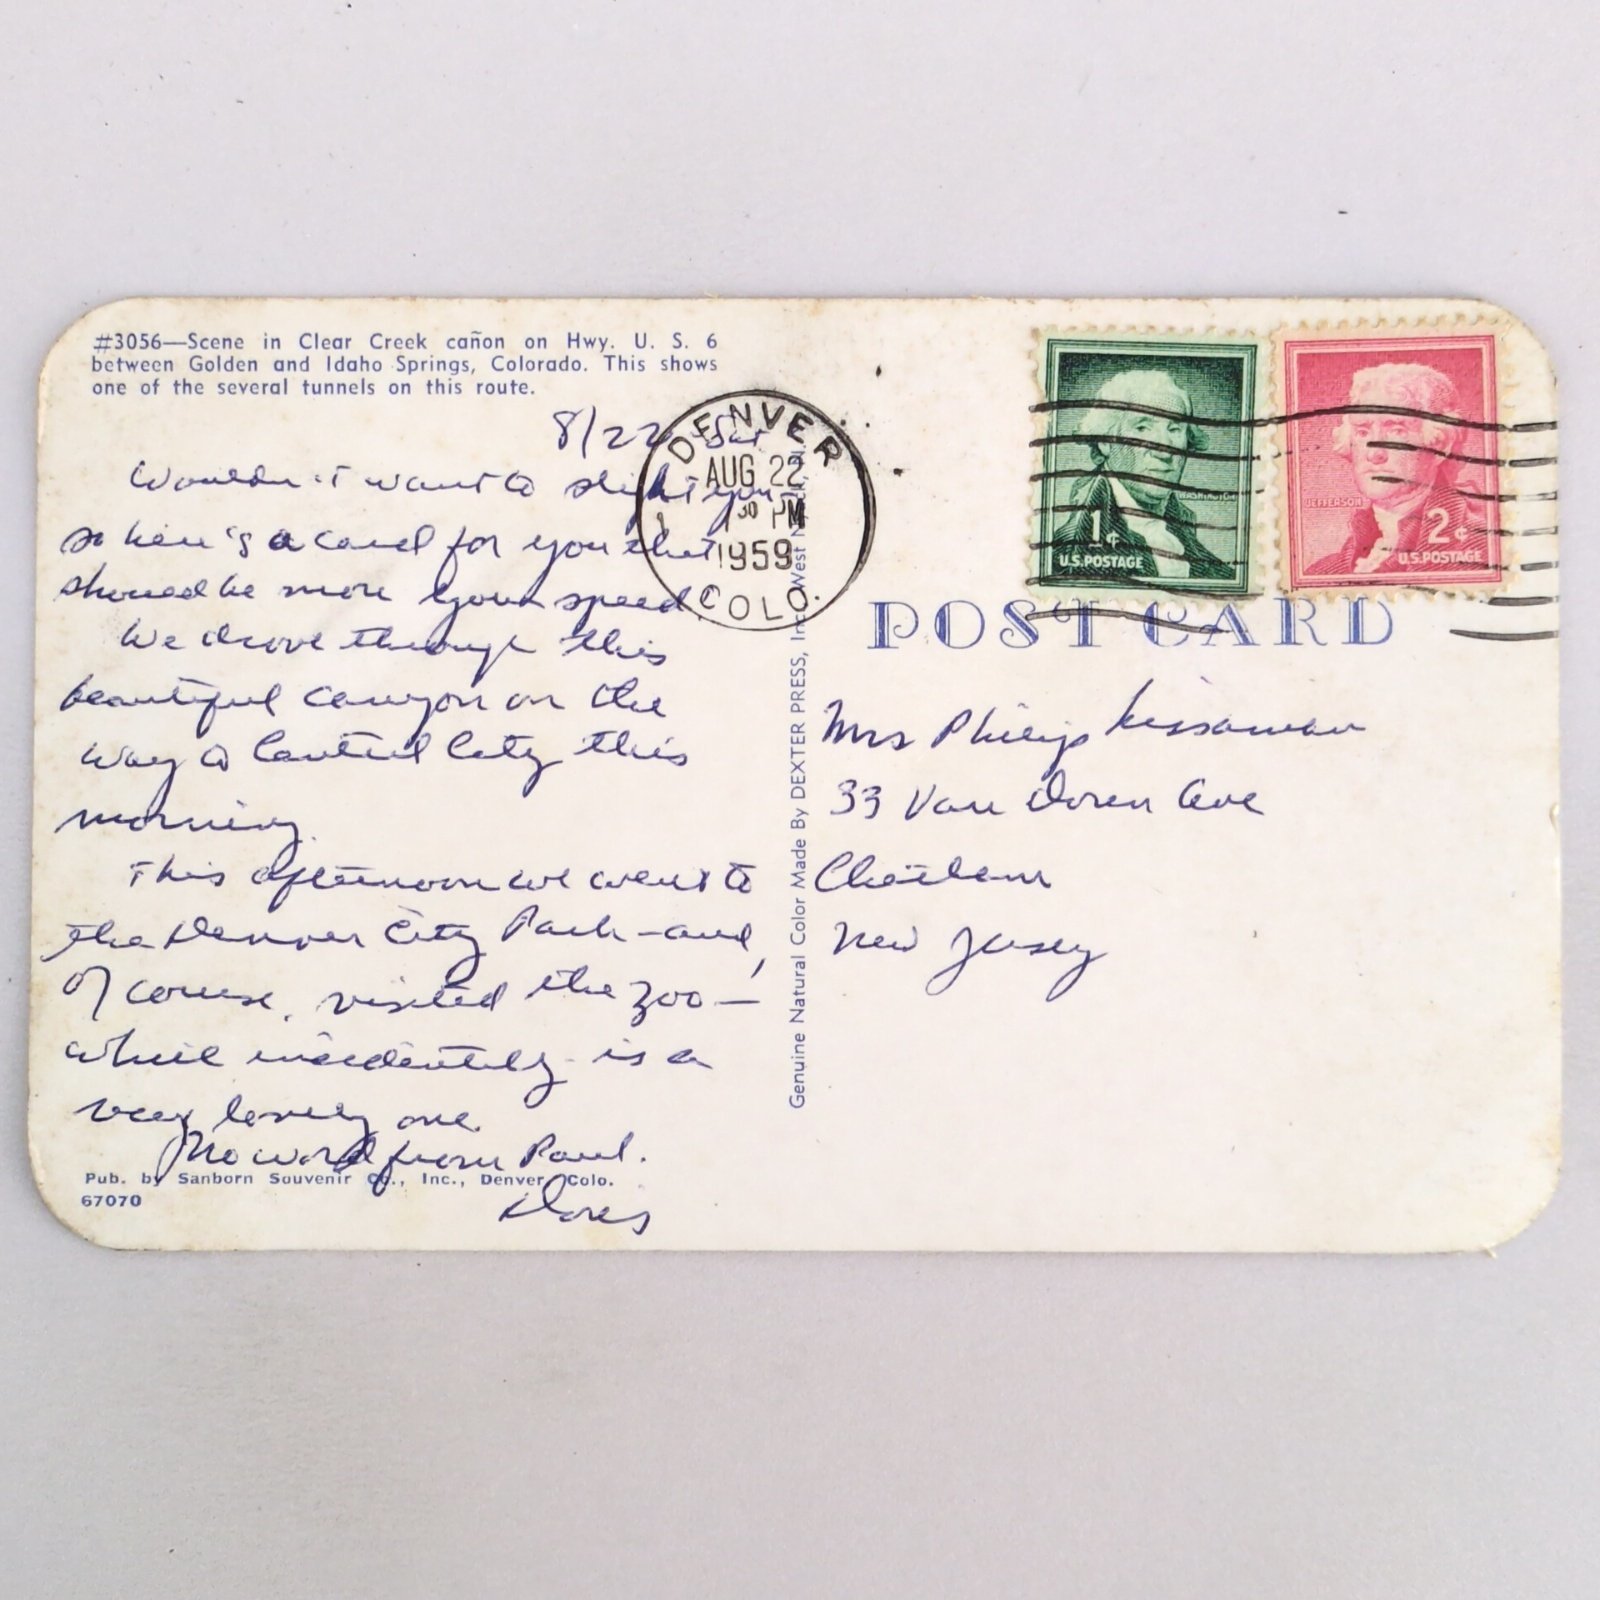 #3056—Scene in Clear Creek cañon on Hwy. U. S. 6
between Golden and Idaho Springs, Colorado. This shows
one of the several tunnels on this route.
8/22 Sat
Wouldn't want to slight you
so here's a card for you that
should be more your speed.
We drove through this
beautiful canyon on the
way to Central City this
morning.
This afternoon we went to
the Denver City Park - and,
of course, visited the zoo —
which incidently is a
very lovely one.
No word from Paul.
Doris
Pub. by Sanborn Souvenir Co., Inc., Denver, Colo.
67070
DENVER
AUG 22
1 30 PM
1959
COLO.
Genuine Natural Color Made By DEXTER PRESS, Inc. West
WASHINGTON
1¢
U.S.POSTAGE
JEFFERSON
2¢
U.S.POSTAGE
POST CARD
Mrs Philip
33 Van Doren Ave
Chatham
New Jersey